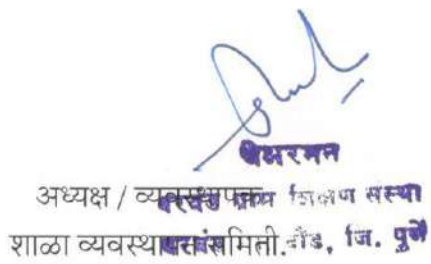 चेअरमन
अध्यक्ष / व्यवस्थापक शिक्षण संस्था
शाळा व्यवस्थापन समिती. दौंड, जि. पुणे